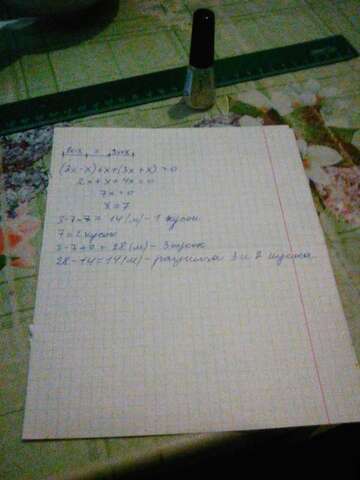 (3x-x)+x+(3x+x)=0
2x+x+4x=0
7x=0
x=7
3·7-7=14(м)-1 кусок
7=2 кусок
3·7+7=28(м)-3 кусок
28-14=14(м)-разница 3 и 2 куска